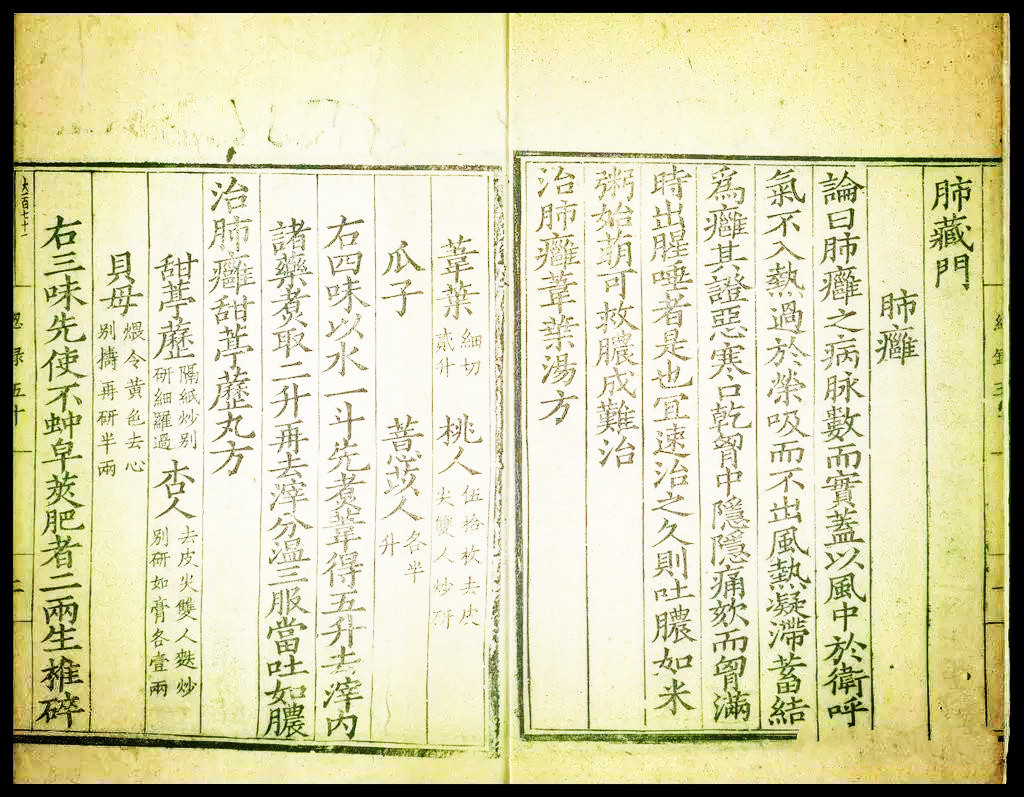 肺藏門
肺癰
論曰肺癰之病脉數而實蓋以風中於衛呼
氣不入熱過於榮吸而不出風熱凝滯蓄結
爲癰其證惡寒口乾胷中隱隱痛欬而胷滿
時出腥唾者是也冝速治之久則吐膿如米
粥始萌可救膿成難治
治肺癰葦葉湯方
葦葉 細切貳升 桃人 伍拾枚去皮尖雙人炒研
瓜子 薏苡人 各半升
右四味以水一斗先煮葦得五升去滓内
諸藥煮取二升再去滓分溫三服當吐如膿
治肺癰甜葶藶丸方
甜葶藶 隔紙炒别研細羅過 杏人 去皮尖雙人麩炒别研如膏各壹兩
貝母 煨令黄色去心别擣再研半兩
右三味先使不蚛皁莢肥者二兩生椎碎